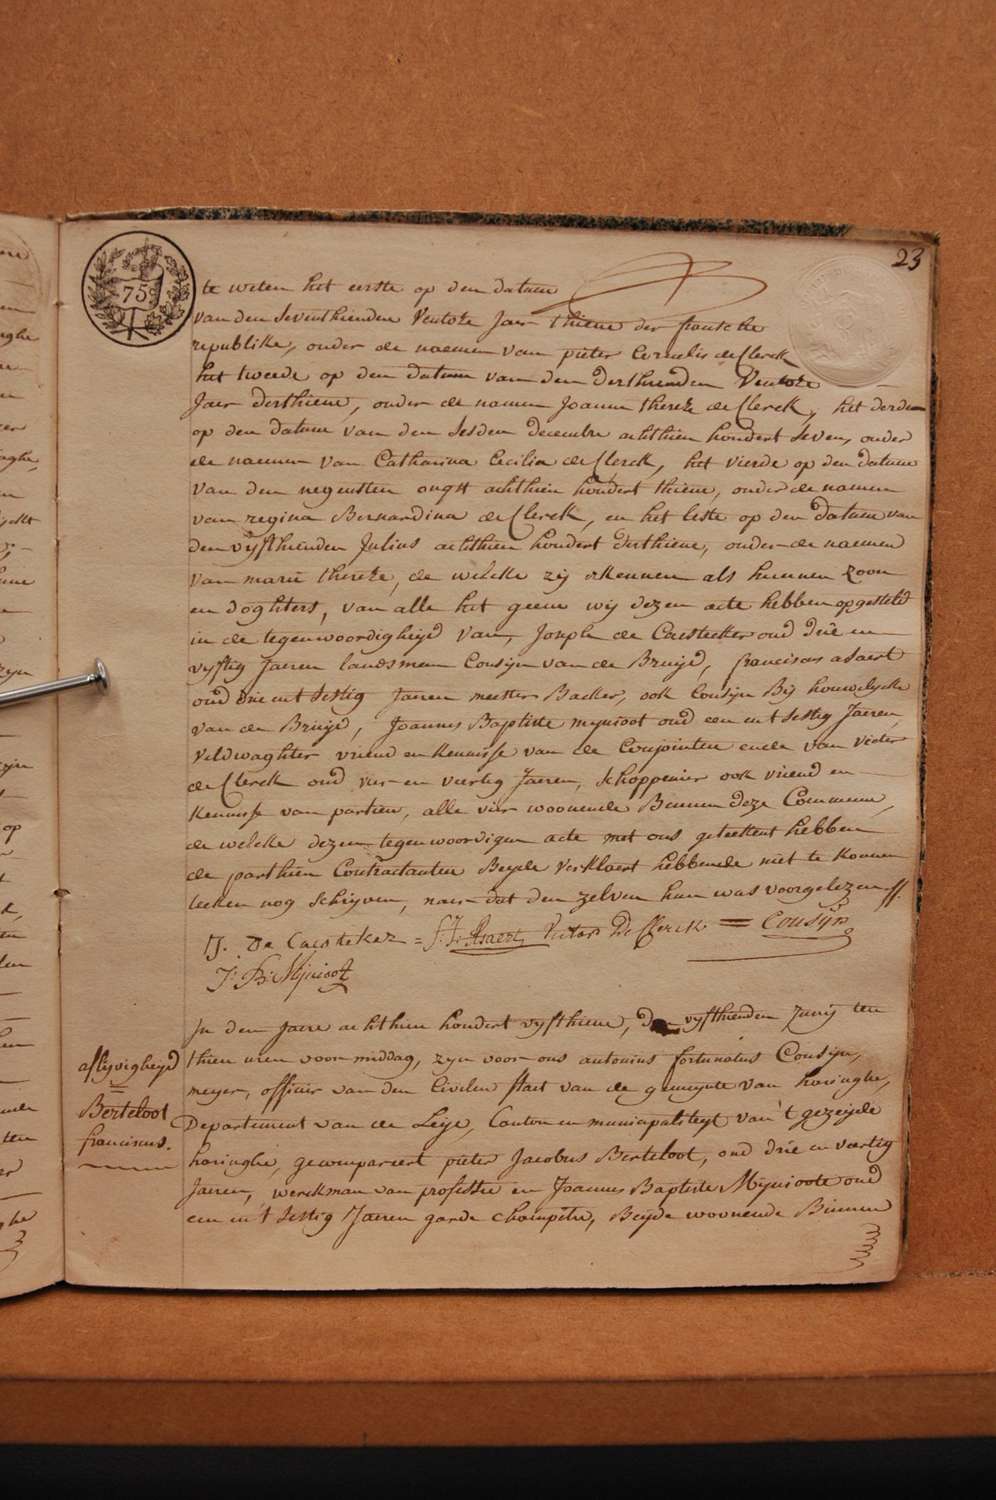 23
75
te weten het eerste op den datum
van den Seventhienden Ventoze Jaer thiene der fransche
republike, onder de naemen van pieter Cornelis deClerck
het tweede op den datum van den derthienden Ventoze
Jaer derthiene, onder de namen Joanna thereze deClerck, het derden
op den datum van den Sesden decembre achthien hondert Seven, onder
de naemen van Catharina Cecilia deClerck, het vierde op den datum
van den negensten ougst achthien hondert thiene, onder de namen
van regina Bernardina deClerck, en het leste op den datum van
den vyfthienden Julius achthien hondert derthiene, onder de naemen
van marie thereze, de welcke zij erkennen als hunnen zoon
en doghters, van alle het geene wij dezen acte hebben opgesteld
in de tegenwoordigheijd van, Joseph de Caestecker oud drie en
vyftig Jaeren landsman Cousijn van de Bruijd, franciscus asaert
oud drie en t Sestig Jaeren meester Backer, ook Cousijn Bij houwelycke
van de Bruijd, Joannes Baptiste mynioot oud een en t Sestig Jaeren,
Veldwaghter vriend en kennisse van de Conjointen ende van Victor
deClerck oud vier en viertig Jaeren, Schoppenier ook vriend en
kennisse van partien, alle vier woonende Binnen deze Commune,
de welcke dezen tegenwoordigen acte met ons geteekent hebben
de parthien Contractanten Beyde verklaert hebbende niet te konnen
leeken nog Schrijven, naer dat den zelven hun was voorgelezen ff.
J. De Caesteker = f: J: Asaert Victor DeClerck = Cousijn
J: B: Mynioot
In den Jaere achthien hondert vyfthiene, den vyfthienden Junij ten
thien uren voor middag, zyn voor ons antonius fortunatus Cousijn,
meyer, officier van den Civilen Staet van de gemeynte van haringhe,
Departement van de Leije, Canton en municipaliteyt van 't gezeijde
haringhe, gecompareert pieter Jacobus Berteloot, oud drie en veertig
Jaeren, werckman van professie en Joannes Baptiste Mynioote oud
een en 't Sestig Jaeren garde champetre, Beijde woonende Binnen
aflijvigheijd
Berteloot
franciscus.